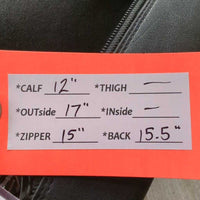 *CALF 12" *THIGH —
*OUTside 17" *INside -
*ZIPPER 15" *BACK 15.5"